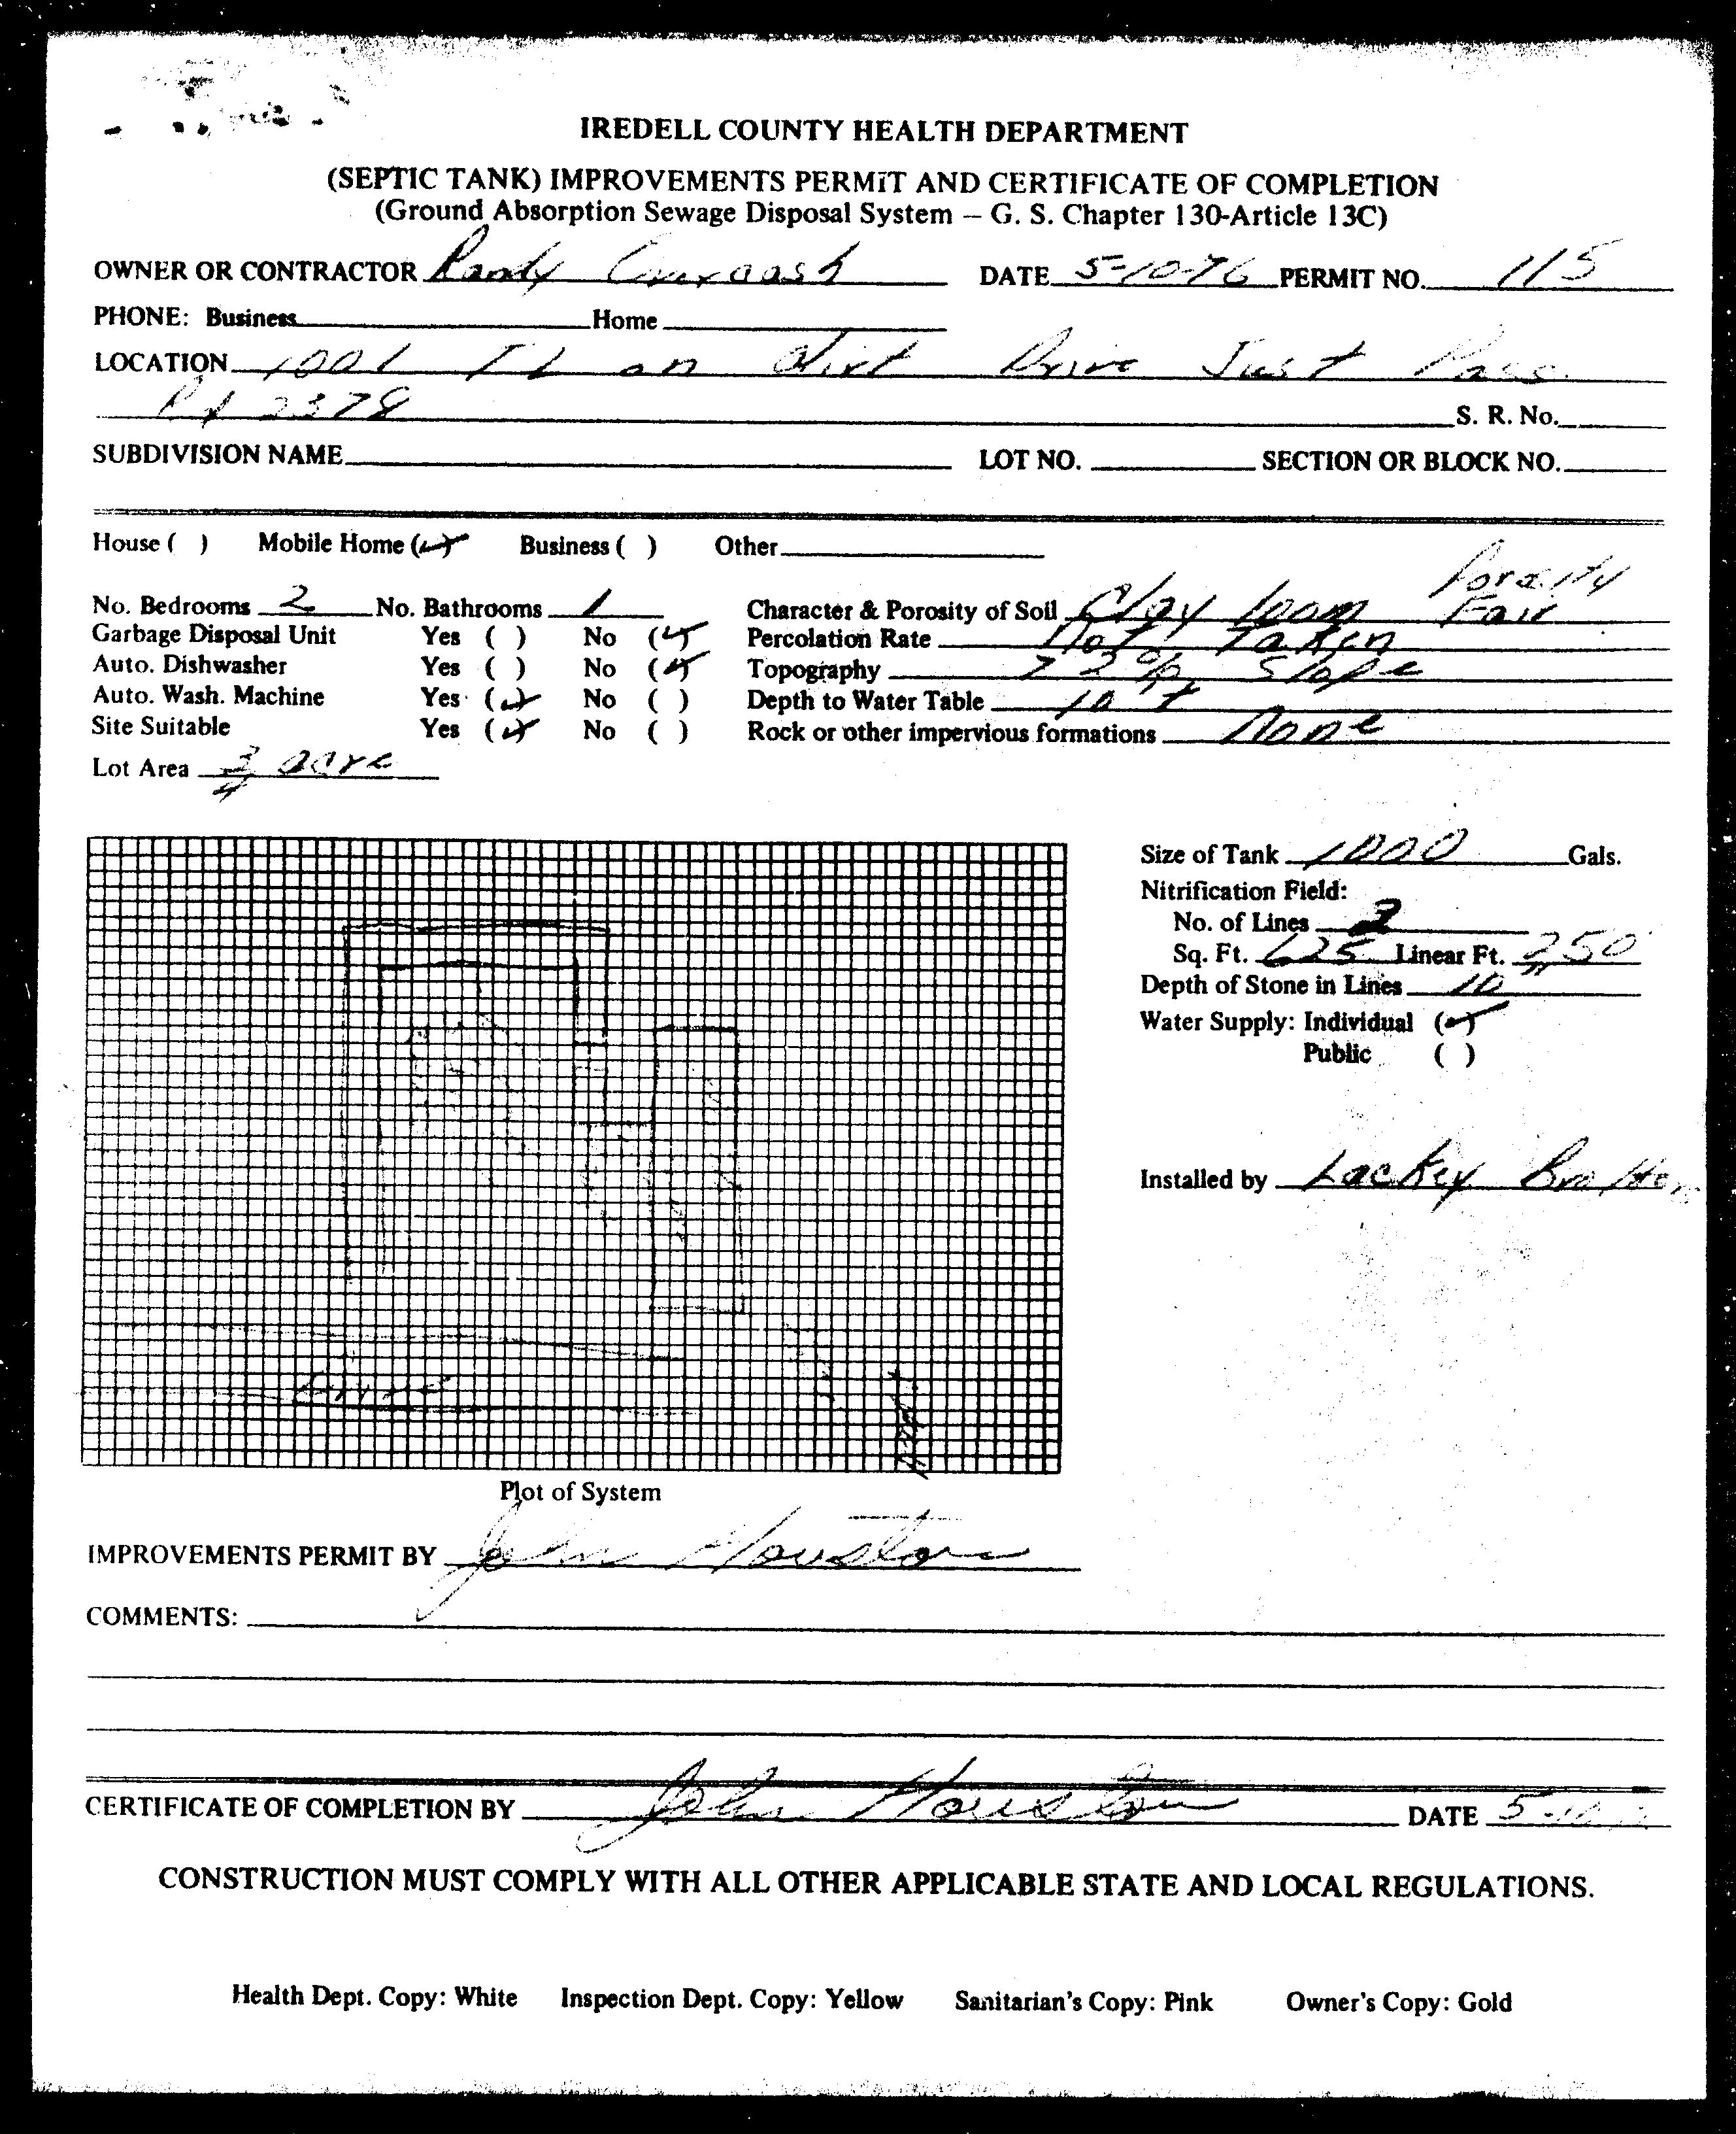 IREDELL COUNTY HEALTH DEPARTMENT
(SEPTIC TANK) IMPROVEMENTS PERMIT AND CERTIFICATE OF COMPLETION
(Ground Absorption Sewage Disposal System – G. S. Chapter 130-Article 13C)
OWNER OR CONTRACTOR Randy DATE 5-10-76 PERMIT NO. 115
PHONE: Business Home
LOCATION 1001 TL on dirt Drive Just Pass
Rd 2378 S. R. No.
SUBDIVISION NAME LOT NO. SECTION OR BLOCK NO.
House ( ) Mobile Home (✓) Business ( ) Other
No. Bedrooms 2 No. Bathrooms 1 Character & Porosity of Soil Clay loam Porosity Fair
Garbage Disposal Unit Yes ( ) No (✓) Percolation Rate Not Taken
Auto. Dishwasher Yes ( ) No (✓) Topography > 2% Slope
Auto. Wash. Machine Yes (✓) No ( ) Depth to Water Table 10 +
Site Suitable Yes (✓) No ( ) Rock or other impervious formations None
Lot Area 3/4 acre
Size of Tank 1000 Gals.
Nitrification Field:
No. of Lines
Sq. Ft. 625 Linear Ft. 250
Depth of Stone in Lines 10"
Water Supply: Individual (✓)
Public ( )
Installed by Lackey
Plot of System
IMPROVEMENTS PERMIT BY John Houston
COMMENTS:
CERTIFICATE OF COMPLETION BY John Houston DATE
CONSTRUCTION MUST COMPLY WITH ALL OTHER APPLICABLE STATE AND LOCAL REGULATIONS.
Health Dept. Copy: White Inspection Dept. Copy: Yellow Sanitarian's Copy: Pink Owner's Copy: Gold